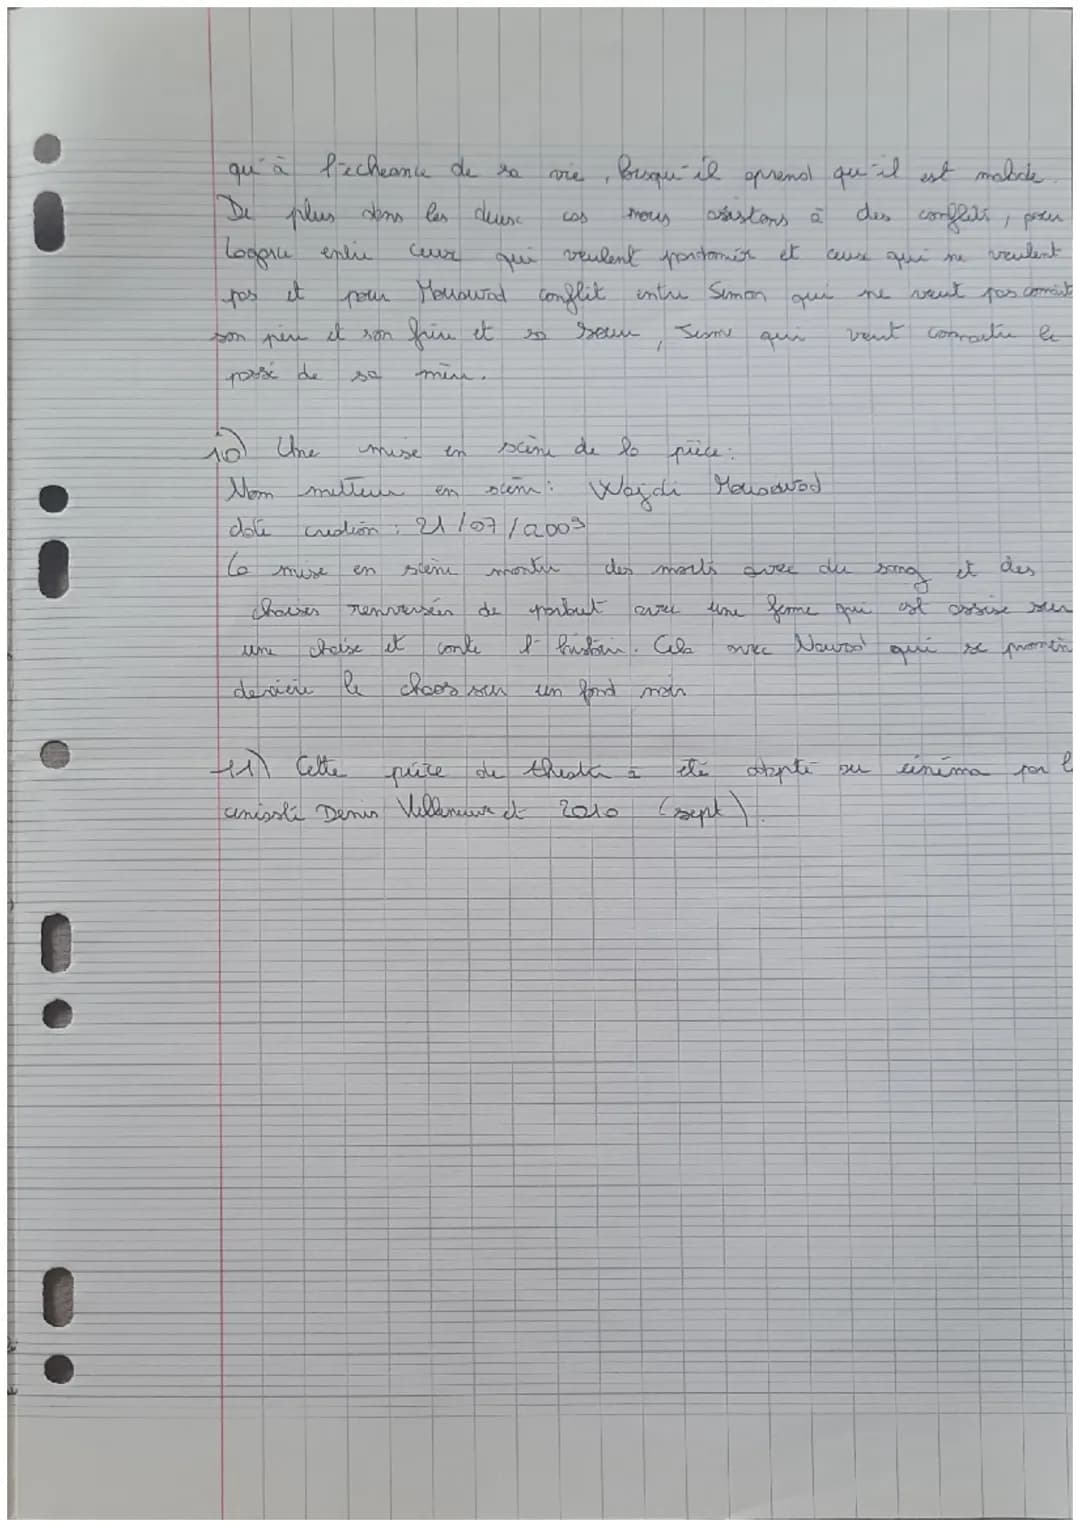 qu'à l'écheance de sa vie, lorsqu'il aprend qu'il est malade.
De plus dans les deux cas nous assistons à des conflits, pour
Lagarce entre ceux qui veulent et ceux qui ne veulent
pas et pour Mouawad conflit entre Simon qui ne veut pas connait
son père et son frère et sa soeur, qui veut connaitre le
passé de sa mère.
10) Une mise en scène de la pièce:
Nom metteur en scène: Wajdi Mouawad
date création: 21/07/2009
La mise en scène montre des morts avec du sang et des
chaises renversées de partout avec une femme qui est assise sur
une chaise et conte l'histoire. Cela avec Nawal qui se promèn
derrière le chaos sur un fond noir
11) Cette pièce de theatre à été adapté au cinéma par l
Denis Villeneuve et 2010 (sept).